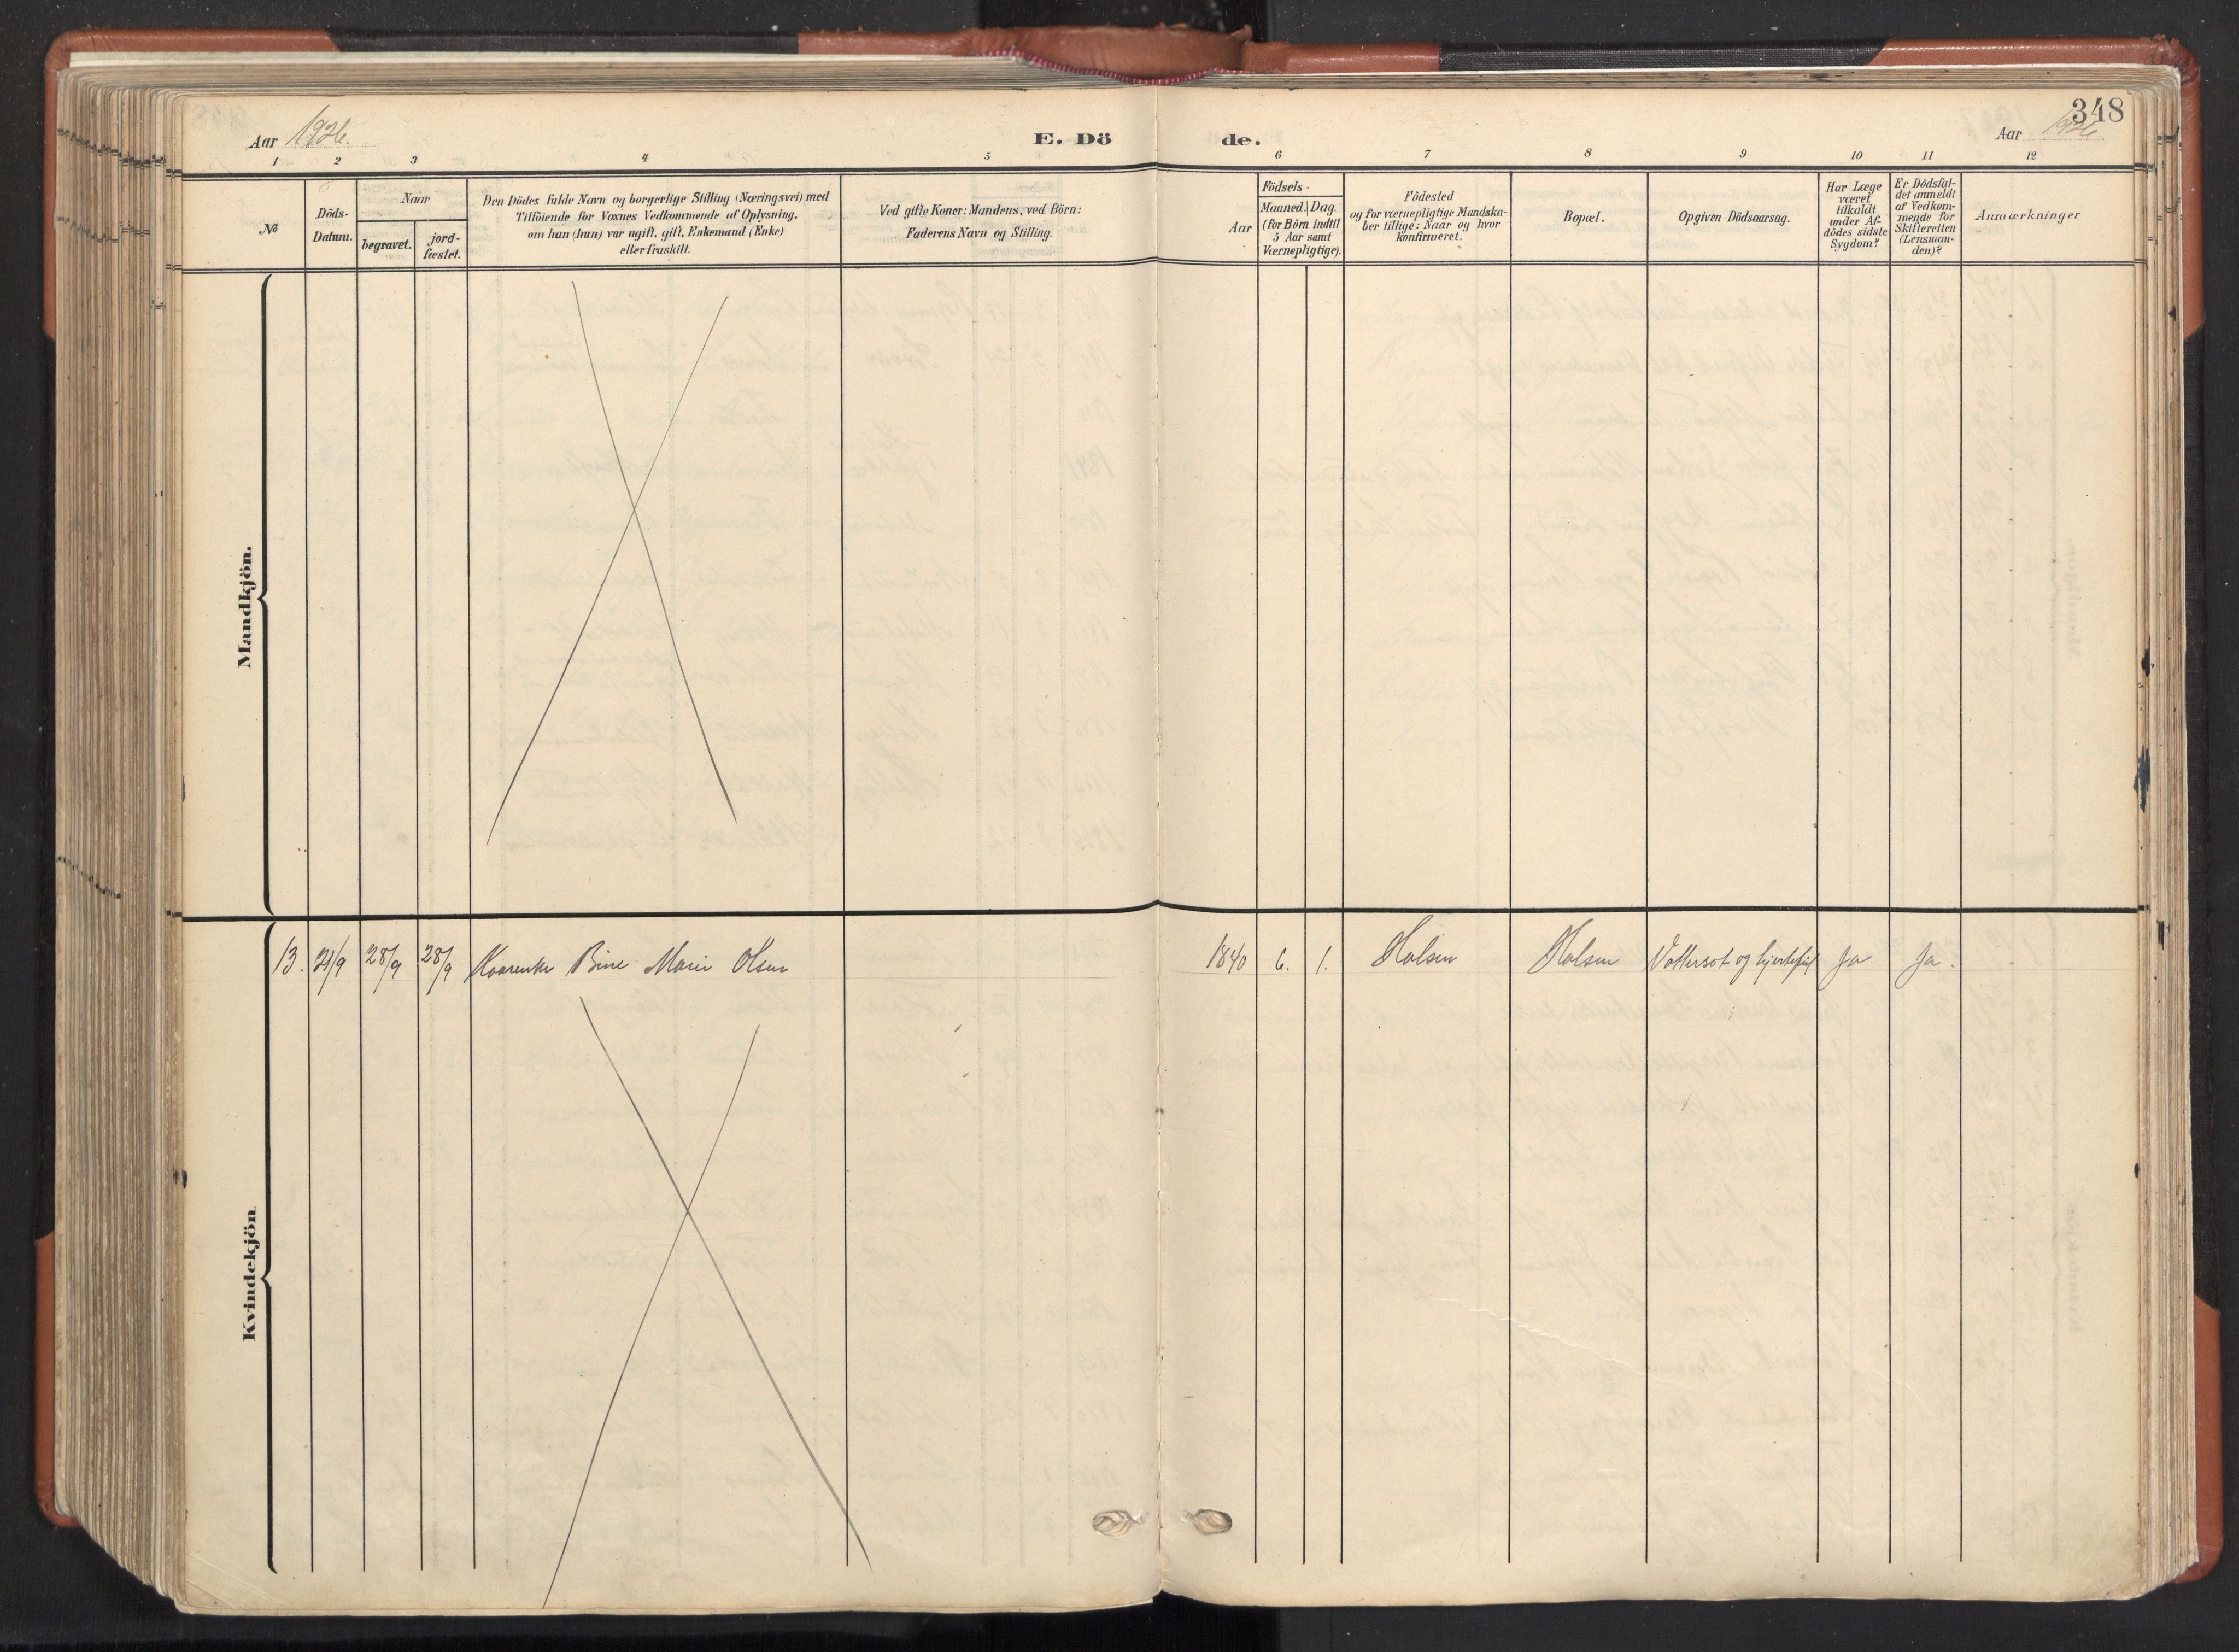 348
Aar 1926.
E. Dö
de.
Aar 1926.
1 2 3 4 5 6 7 8 9 10 11 12
№
Döds-
Datum.
Naar
begravet.
jord-
fæstet.
Den Dödes fulde Navn og borgerlige Stilling (Næringsvei) med
Tilföiende for Voxnes Vedkommende af Oplysning,
om han (hun) var ugift, gift, Enkemand (Enke)
eller fraskilt.
Ved gifte Koner: Mandens, ved Börn:
Faderens Navn og Stilling.
Födsels-
Aar
Maaned. Dag.
(for Börn indtil
5 Aar samt
Værnepligtige).
Födested
og for værnepligtige Mandska-
ber tillige: Naar og hvor
Konfirmeret.
Bopæl.
Opgiven Dödsaarsag.
Har Læge
været
tilkaldt
under Af-
dödes sidste
Sygdom?
Er Dödsfal-
det anmeldt
af Vedkom-
mende for
Skifteretten
(Lensman-
den)?
Anmærkninger
Mandkjön.
Kvindekjön
13. 21/9 28/9 28/9 Bine Marie Olsen 1840 6. 1. Holsen Holsen Vattersot og hjertefeil Ja Ja.